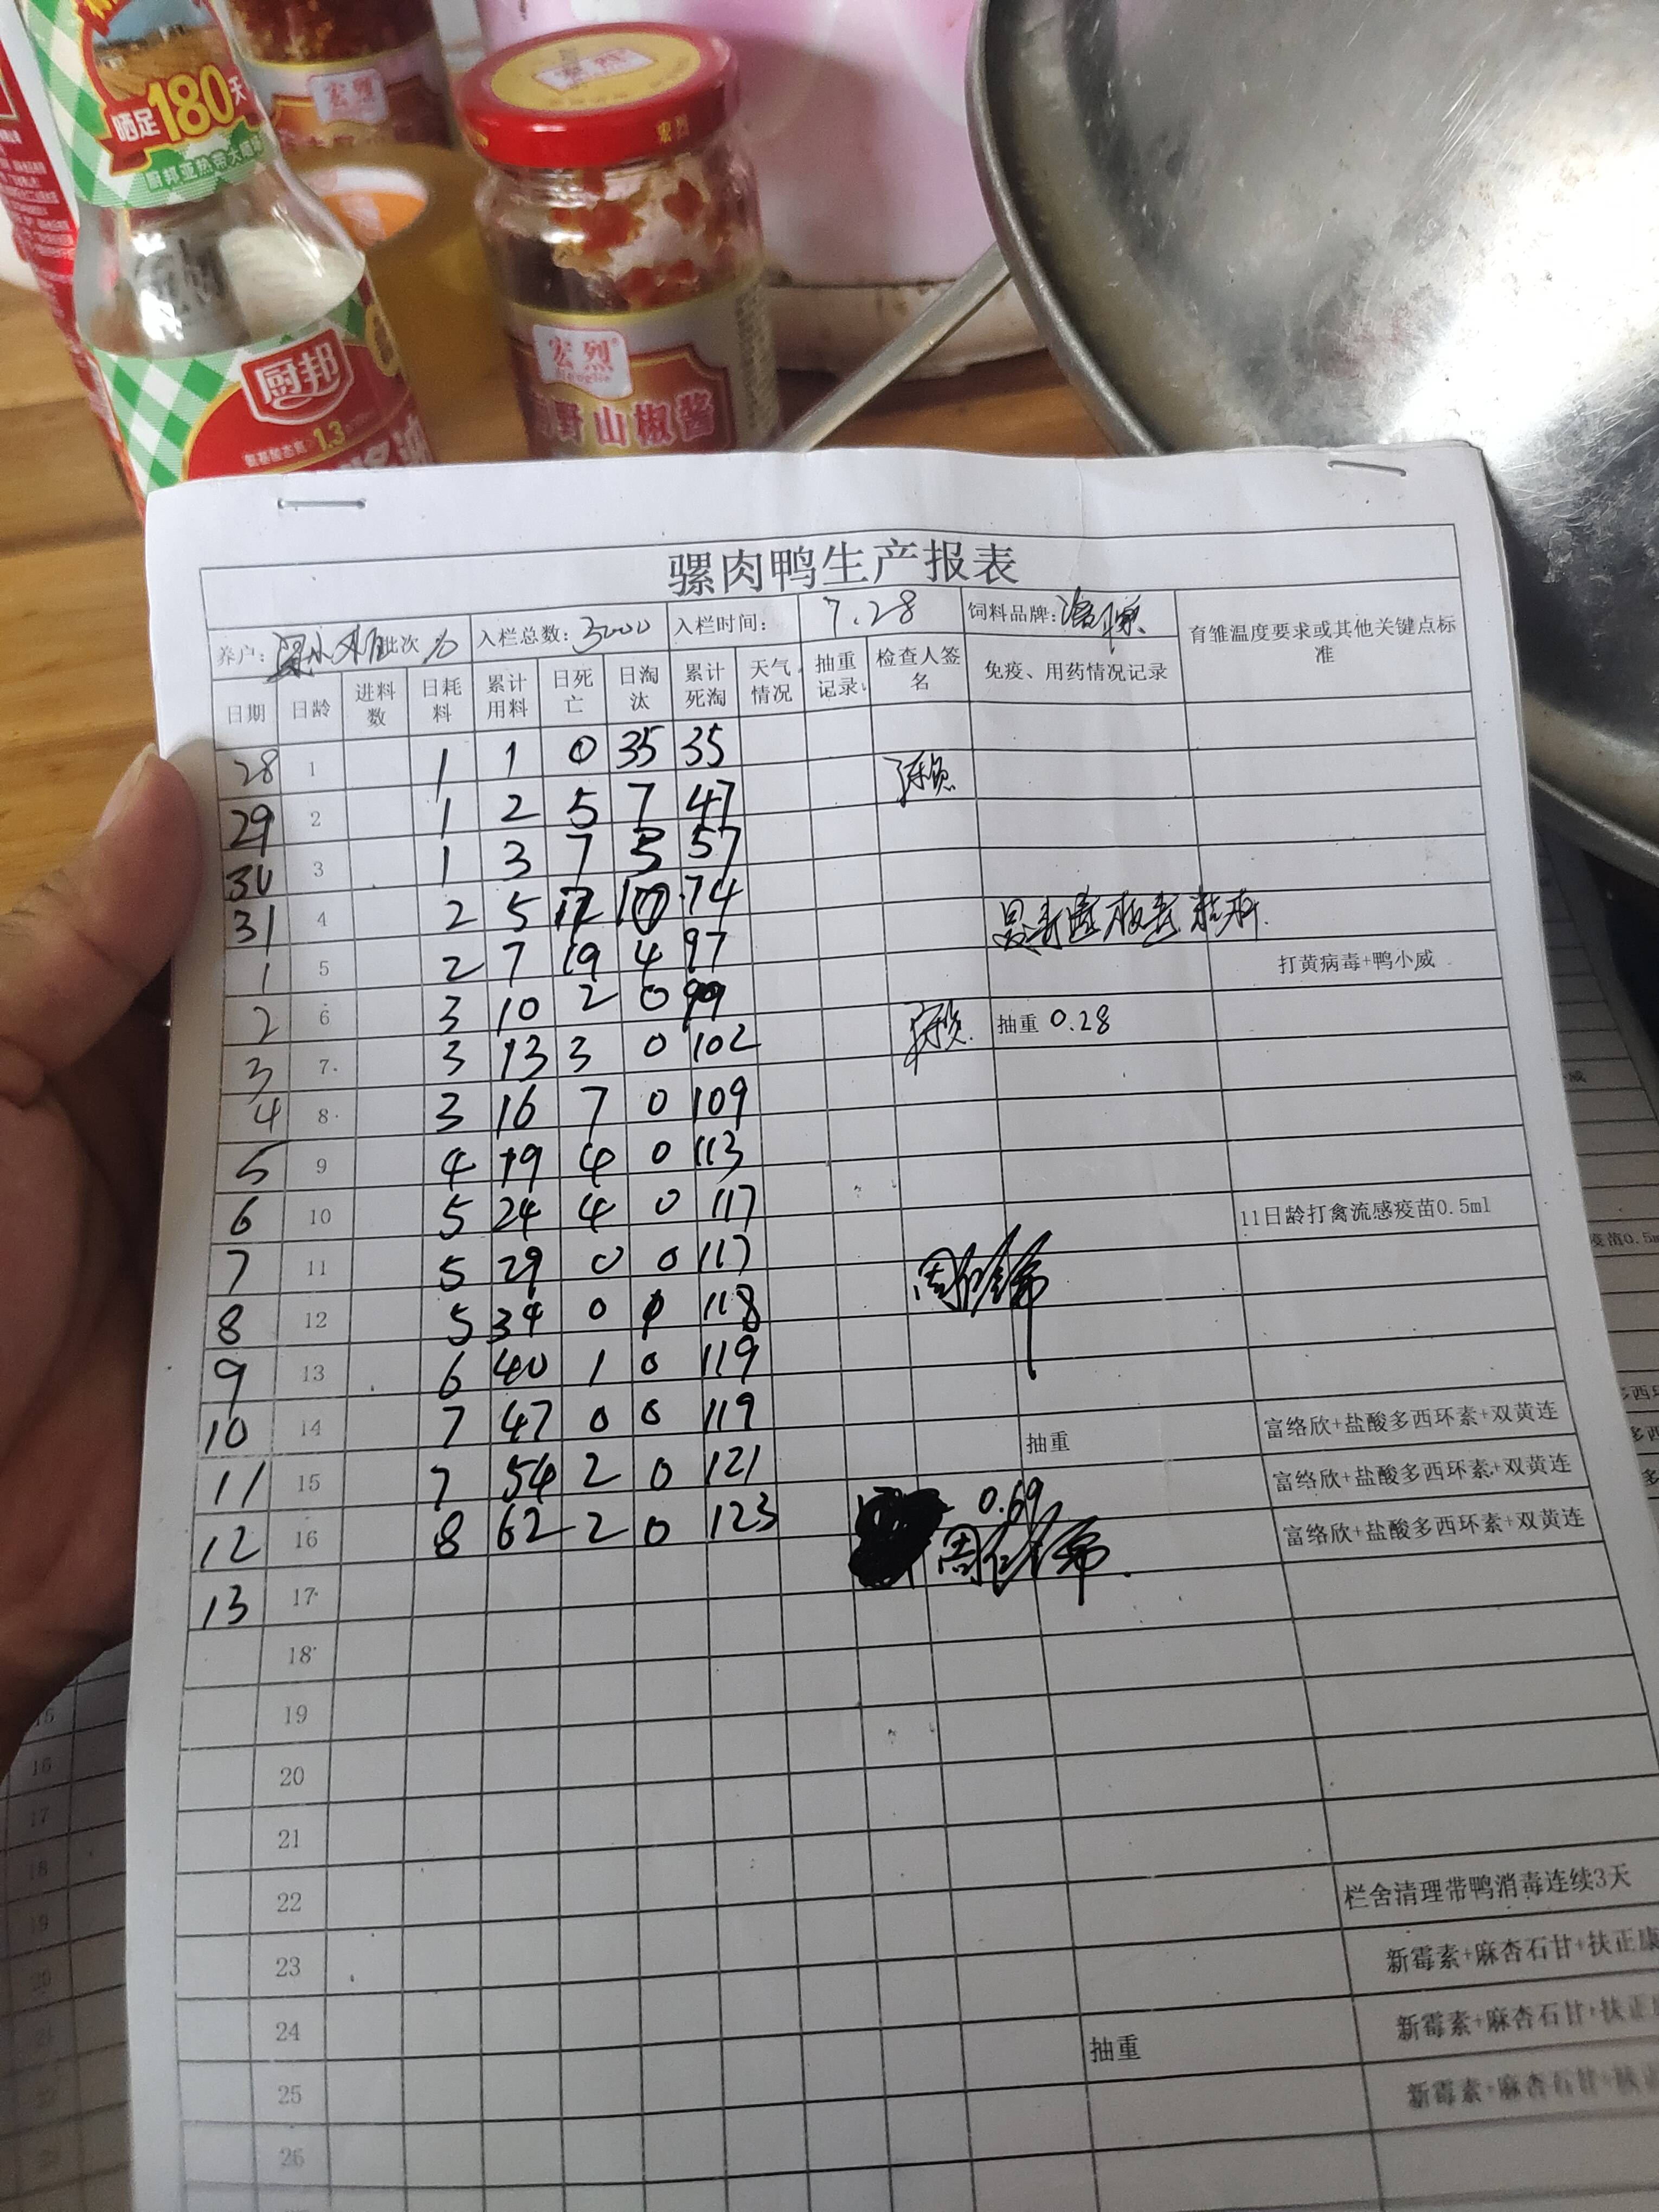 晒足180天
厨邦亚热带大晒场
宏烈
宏烈
厨邦
氨基酸态氮 1.3
宏烈
野山椒酱
骡肉鸭生产报表
养户: 批次 入栏总数: 3000 入栏时间: 7.28 饲料品牌: 育雏温度要求或其他关键点标准
日期 日龄 进料数 日耗料 累计用料 日死亡 日淘汰 累计死淘 天气情况 抽重记录 检查人签名 免疫、用药情况记录
28 1 1 1 0 35 35
29 2 1 2 5 7 47
30 3 1 3 7 5 57
31 4 2 5 10 74
1 5 2 7 19 4 97 打黄病毒+鸭小威
2 6 3 10 2 0 99 抽重 0.28
3 7 3 13 3 0 102
4 8 3 16 7 0 109
5 9 4 19 4 0 113
6 10 5 24 4 0 117 11日龄打禽流感疫苗0.5ml
7 11 5 29 0 0 117
8 12 5 34 0 118
9 13 6 40 1 0 119
10 14 7 47 0 0 119 抽重 富络欣+盐酸多西环素+双黄连
11 15 7 54 2 0 121 0.69 富络欣+盐酸多西环素+双黄连
12 16 8 62 2 0 123 富络欣+盐酸多西环素+双黄连
13 17
18
19
20
21
22 栏舍清理带鸭消毒连续3天
23 新霉素+麻杏石甘+扶正康
24 抽重 新霉素+麻杏石甘+扶正
25 新霉素+麻杏石甘+扶正
26